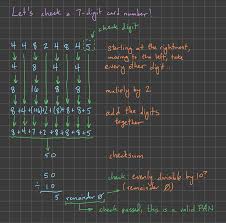 Let's check a 7-digit card number!
check digit
4 4 8 2 4 8 4 5
starting at the rightmost,
moving to the left, take
4 8 4 4
every other digit...
8 16 8 8
multiply by 2
8+4+(16)+2+(8)+8+(8)+5
add the digits
8+4+7+2+8+8+8+5
together
50
checksum
50
check: evenly divisible by 10?
÷ 10
(remainder 0)
5 remainder 0
check passed, this is a valid PAN